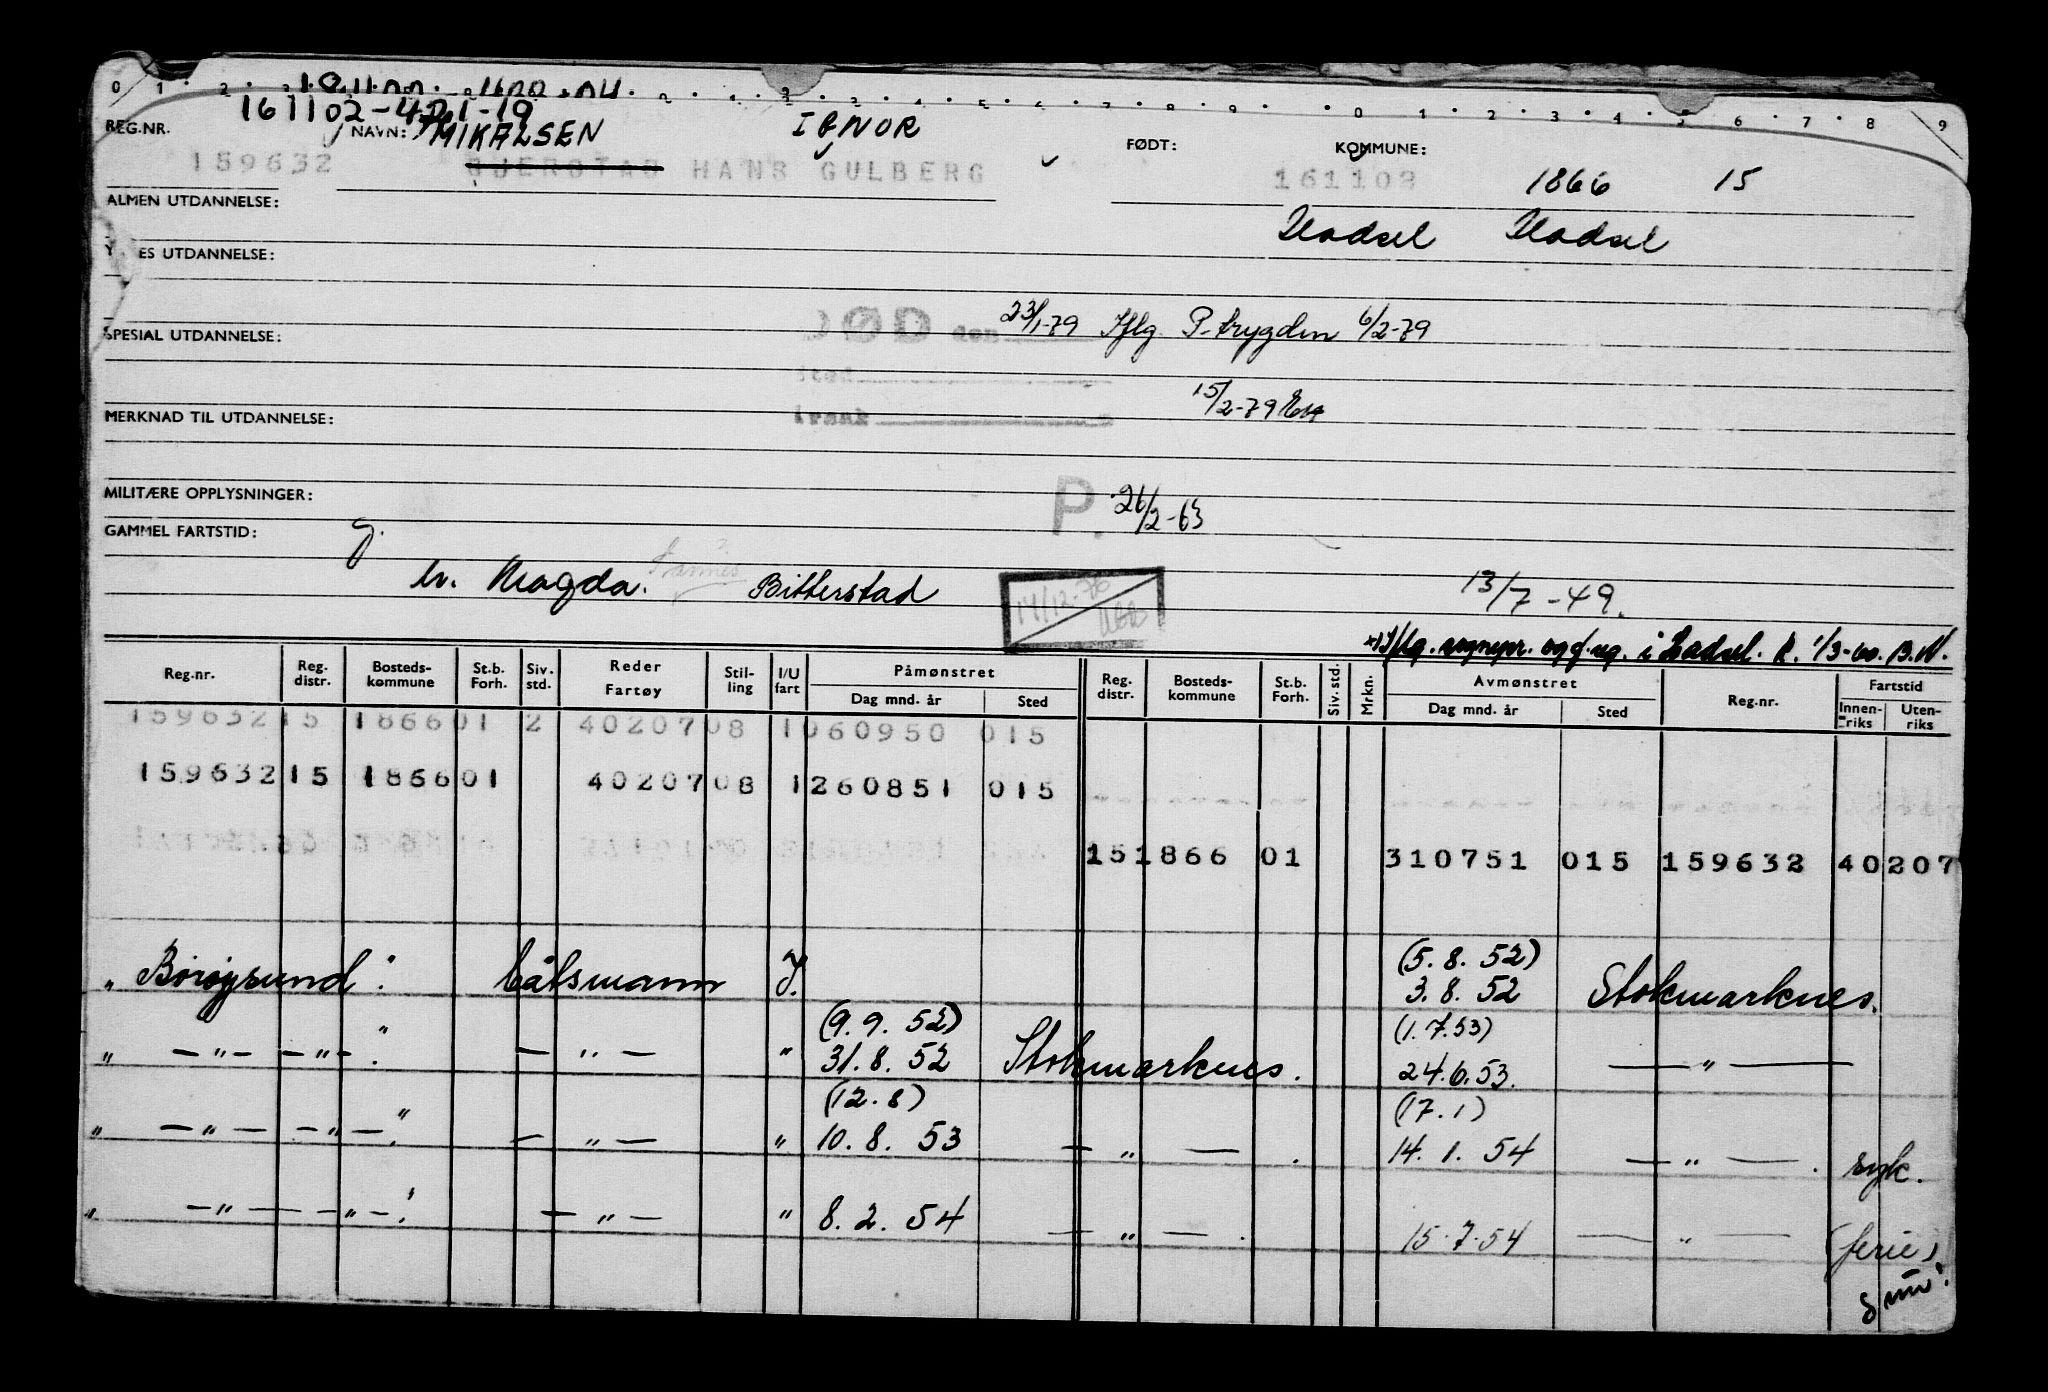 0 1 2 3 4 5 6 7 8 9 0 1 2 3 4 5 6 7 8 9
161102-421-19
REG.NR. NAVN: MIKALSEN FØDT: KOMMUNE:
159632 GJERSTAD HANS GULBERG 161102 1866 15
ALMEN UTDANNELSE: Hadsel Hadsel
YRKES UTDANNELSE:
DØD den 23/1-79 Iflg. P-trygden 6/2-79
SPESIAL UTDANNELSE:
sted
15/2-79
MERKNAD TIL UTDANNELSE:
MILITÆRE OPPLYSNINGER: P. 26/2-63
GAMMEL FARTSTID: g.
Magda. Bitterstad 13/7-49.
x) Iflg. i Hadsel. 1/3-60. B.N.
Reg.nr. Reg. distr. Bosteds-kommune St.b. Forh. Siv. std. Reder Fartøy Stilling I/U fart Påmønstret Dag mnd. år Sted Reg. distr. Bosteds-kommune St.b. Forh. Siv. std. Mrkn. Avmønstret Dag mnd. år Sted Reg.nr. Fartstid Innen-riks Uten-riks
159632 15 1866 01 2 40207 08 1 060950 015
159632 15 1866 01 40207 08 1 260851 015
15 1866 01 310751 015 159632 40207
„ Børøysund". båtsmann I. (5.8.52) 3.8.52 Stokmarknes.
„ — " — — " — ". — " — " (9.9.52) 31.8.52 Stokmarknes. (1.7.53) 24.6.53. — " —
„ — " — — " — ". — " — " (12.8) 10.8.53 — " — . (17.1) 14.1.54 — " — . syk.
„ — " — — " — ". — " — " 8.2.54 — " — . 15.7.54 — " — (ferie)